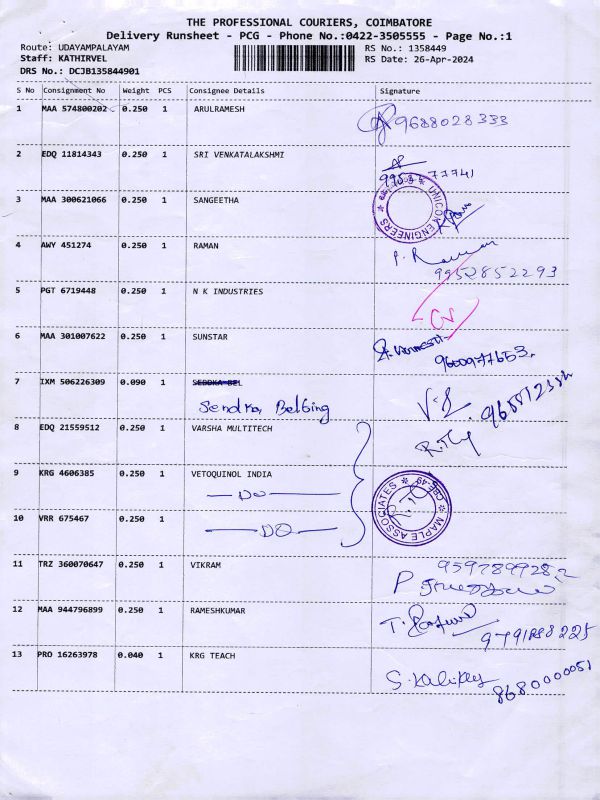 THE PROFESSIONAL COURIERS, COIMBATORE
Delivery Runsheet - PCG - Phone No.:0422-3505555 - Page No.:1
Route: UDAYAMPALAYAM RS No.: 1358449
Staff: KATHIRVEL RS Date: 26-Apr-2024
DRS No.: DCJB135844901
S No Consignment No Weight PCS Consignee Details Signature
1 MAA 574800202 0.250 1 ARULRAMESH 9688028333
2 EDQ 11814343 0.250 1 SRI VENKATALAKSHMI
3 MAA 300621066 0.250 1 SANGEETHA UNICON ENGINEERS
4 AWY 451274 0.250 1 RAMAN P. Raman
9952852293
5 PGT 6719448 0.250 1 N K INDUSTRIES
6 MAA 301007622 0.250 1 SUNSTAR
9600977663.
7 IXM 506226309 0.090 1 SEDDKA BEL
Sendka Belbing
8 EDQ 21559512 0.250 1 VARSHA MULTITECH
9 KRG 4606385 0.250 1 VETOQUINOL INDIA
— DO —
MAPLE ASSOCIATES CBE-49
10 VRR 675467 0.250 1 — DO —
11 TRZ 360070647 0.250 1 VIKRAM 9597899282
12 MAA 944796899 0.250 1 RAMESHKUMAR
13 PRO 16263978 0.040 1 KRG TEACH 8680000051